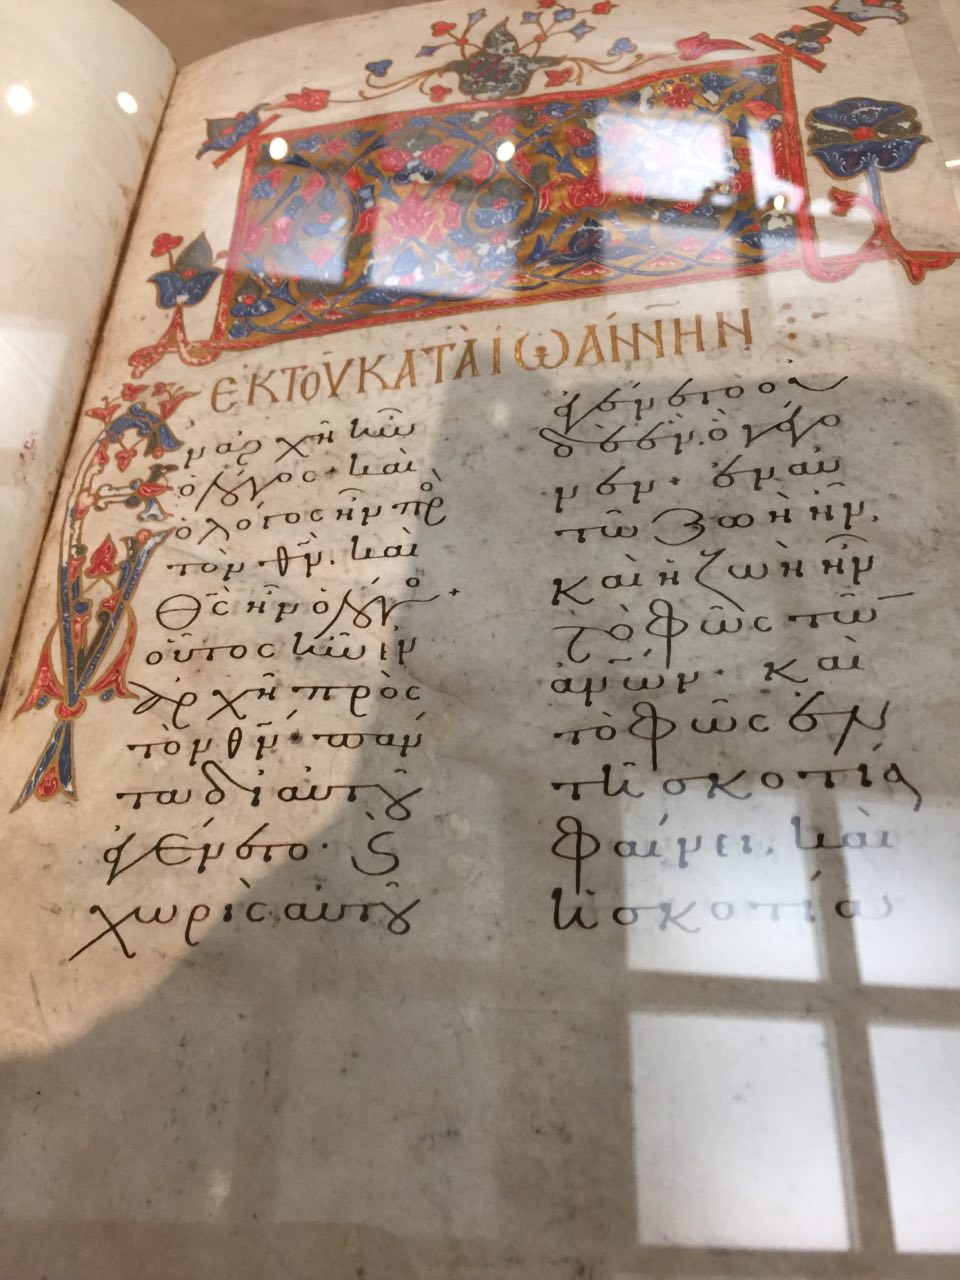 ΕΚ ΤΟΥ ΚΑΤΑ ΙΩΑΝΝΗΝ
Ἐν ἀρχῇ ἦν
ὁ λόγος· καὶ
ὁ λόγος ἦν πρ
τὸν θν. καὶ
θς ἦν ὁ λόγο·
οὗτος ἦν ἐν
ἀρχῇ πρὸς
τὸν θν· πάν
τα δι αὐτοῦ
ἐγένετο· ϗ
χωρὶς αὐτοῦ
ἐγένετο οὐ
δὲ ἕν. ὃ γέγο
νεν· ἐν αὐ
τῶ ζωὴ ἦν.
καὶ ἡ ζωὴ ἦν
τὸ φῶς τῶν
ἀνων· καὶ
τὸ φῶς ἐν
τῆ σκοτία
φαίνει. καὶ
ἡ σκοτία